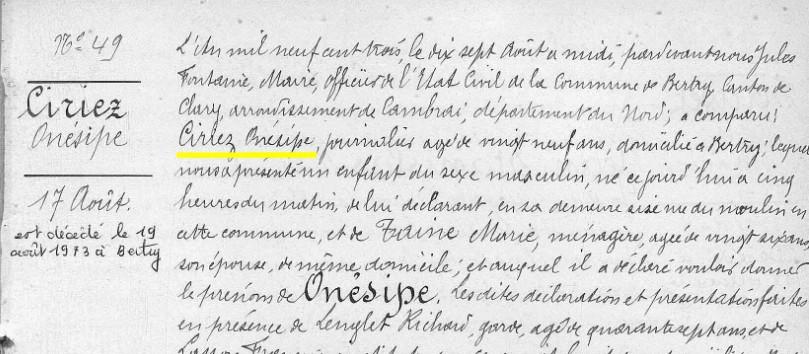 N° 49
Ciriez
Onésipe
17 Août.
est décédé le 19
août 1973 à Bertry
L'An mil neuf cent trois, le dix sept Août à midi, pardevant nous Jules
Fontanie, Maire, Officier de l'Etat Civil de la Commune de Bertry, Canton de
Clary, arrondissement de Cambrai, département du Nord; a comparu:
Ciriez Onésipe, journalier agé de vingt neuf ans, domicilié à Bertry; lequel
nous a présenté un enfant du sexe masculin, né ce jourd'hui à cinq
heures du matin, de lui déclarant, en sa demeure sise rue du moulin en
cette commune, et de Taine Marie, ménagère, agée de vingt six ans
son épouse, de même domicile; et auquel il a déclaré vouloir donner
le prénom de Onésipe. Les dites déclaration et présentation faites
en présence de Lenglet Richard, garde, agé de quarante sept ans, et de